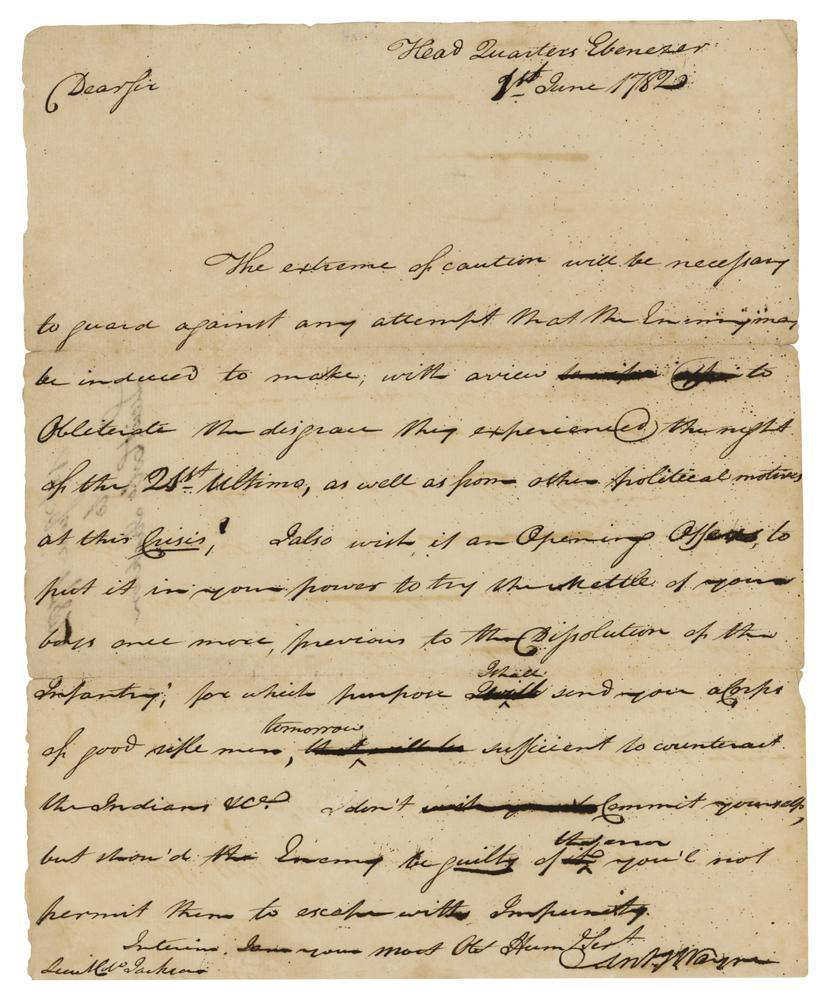 Head Quarters Ebenezer
1st June 1782
Dear Sir
The extreme of caution will be necessary
to guard against any attempt that the Enemy may
be induced to make, with a view to
Obliterate the disgrace they experienced the night
of the 21st Ultimo, as well as from other political motives
at this Crisis,! I also wish, if an Opening Offers, to
put it in your power to try the Mettle of your
boys once more, previous to the Dissolution of the
Infantry; for which purpose I shall send you a Corps
of good rifle men, tomorrow sufficient to counteract
the Indians &c. don't Commit yourself,
but shou'd the Enemy be guilty of the error you'l not
permit them to escape with Impunity.
Interim I am your most Obt Humbl Sert
Anty Wayne
Jackson